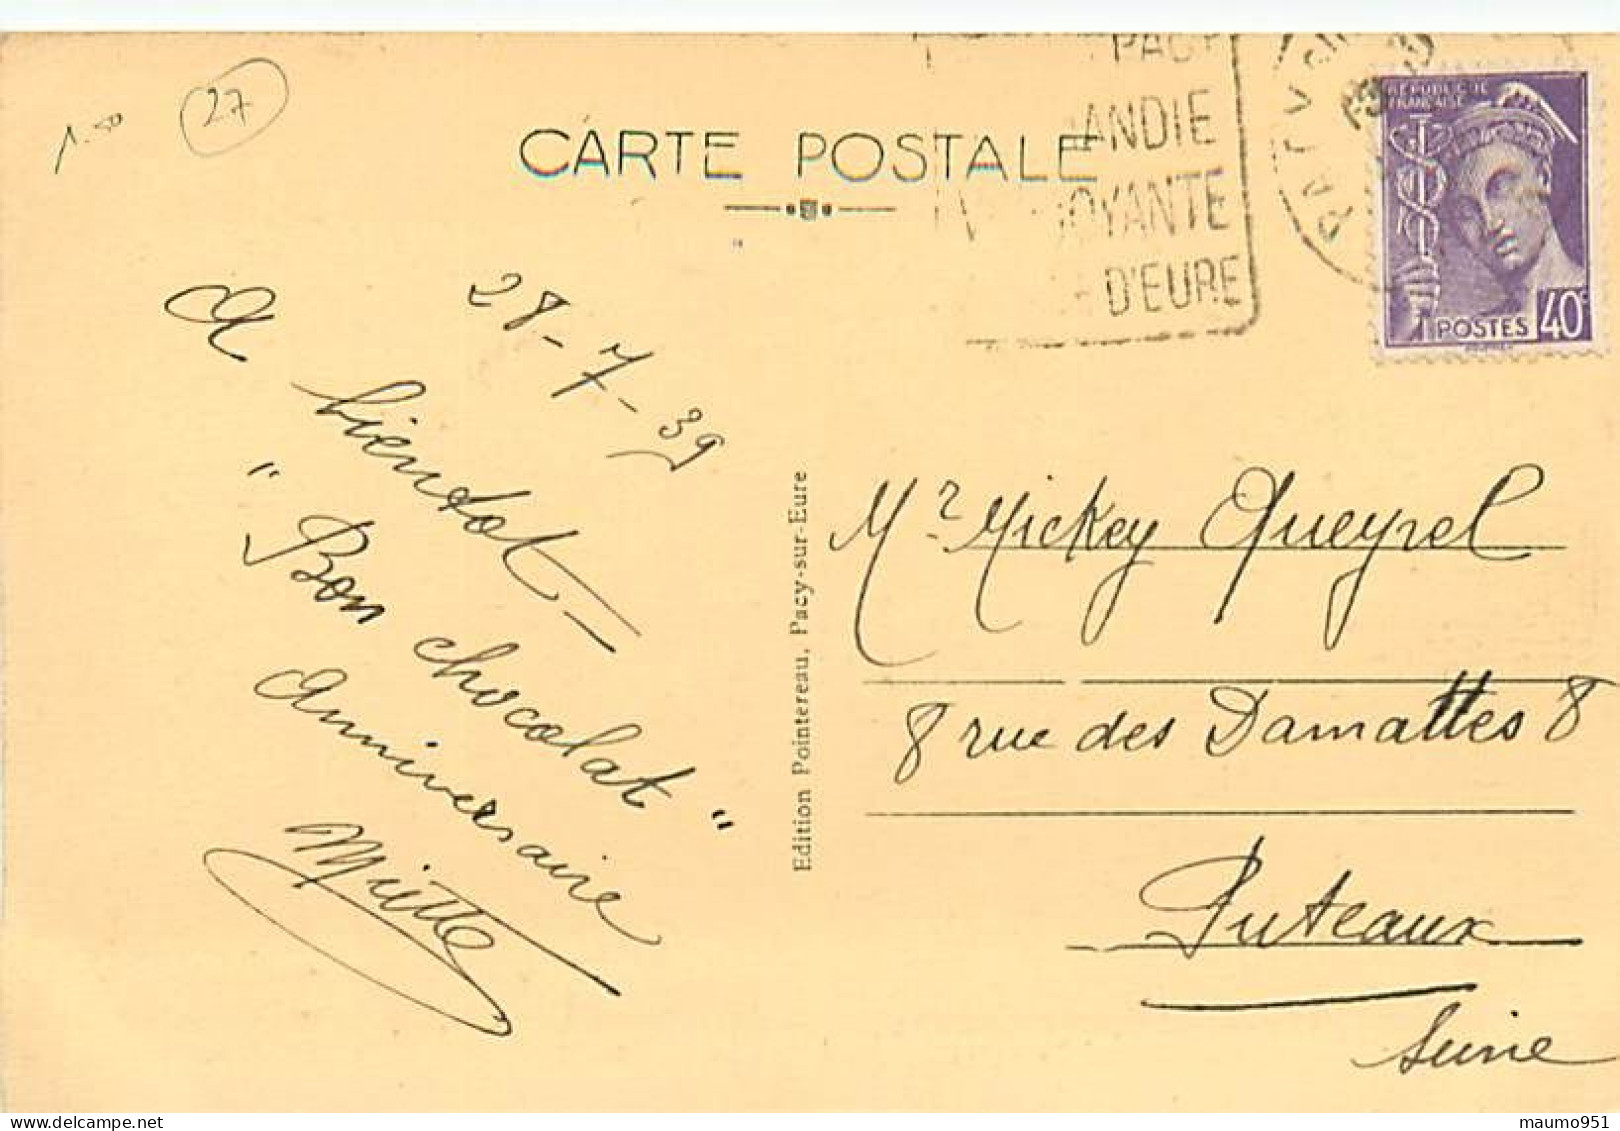 1.50
27
CARTE POSTALE
PACY
ANDIE
OYANTE
D'EURE
PACY SUR
RÉPUBLIQUE
FRANÇAISE
POSTES 40c
28-7-39
A bientot -
"Bon chocolat"
Anniversaire
Miette
Edition Pointereau, Pacy-sur-Eure
Mr Mickey Queyrel
8 rue des Damattes 8
Puteaux
Seine
maumo951